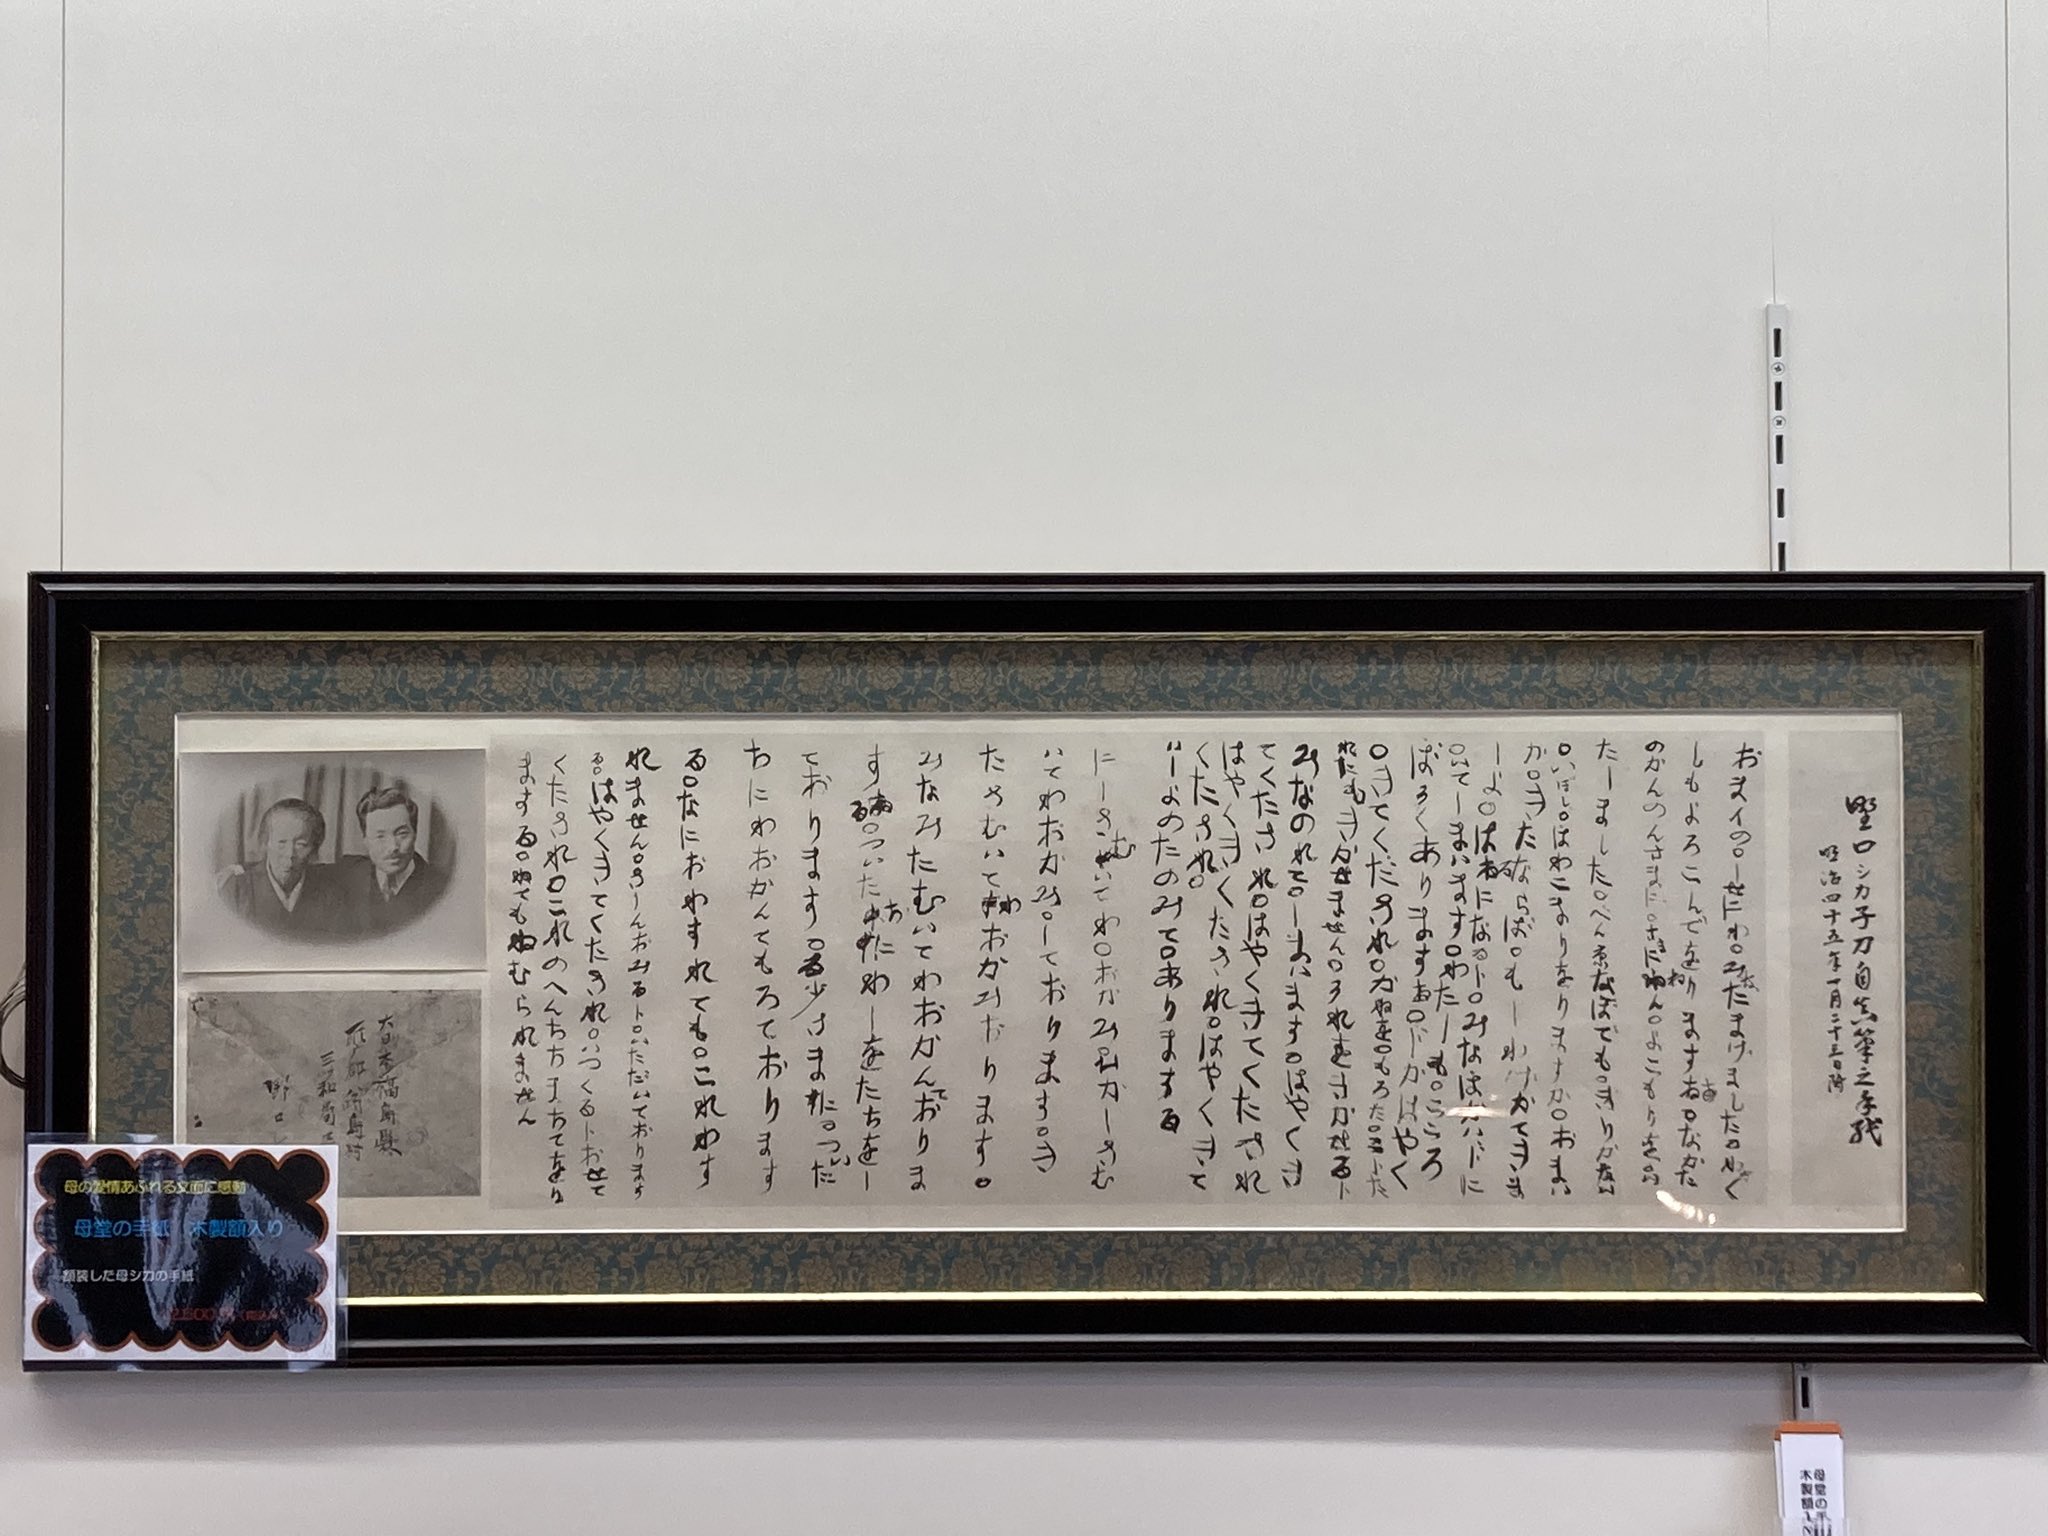 野口シカ子刀自真筆之手紙
明治四十五年一月二十三日附
おまイの○しせにわ○みなたまけました○わたく
しもよろこんでをりますわ○なかた
のかんのんさまに○さまにねん○よこもりをい
たしました○べん京なぼでも○きりがない
○いぼし○ほわこまりをりますか○おまい
か○きたならば○もしわけかてきま
しよ○はるになるト○みなほかいドに
○いてしまいます○わたしも○こころ
ぼそくあります○ドかはやく
○きてくだされ○かねを○もろた○ことた
れにもきかせません○それをきかせるト
みなのれて○しまいます○はやくき
てくたされ○はやくきてくたされ
はやくきてくたされ○はやくきて
くたされ○
いしよのたのみて○ありまする
にしさむいてわ○おかみひかしさむ
いてわおかみ○しております○き
たさむいてわおかみおります○
みなみたむいてわおかんておりま
する○ついたちにわしをたちをし
ております○る少さまに○ついた
ちにわおかんてもろております
る○なにおわすれても○これわす
れません○さしんおみるト○いただいております
る○はやくきてくたされ○いつくるトおせて
くたされ○これのへんちちまちてをり
まする○ねてもねむられません
大日本福島県
三ツ和
野口
母の愛情あふれる文面に感動
母堂の手紙 木製額入り
額装した母シカの手紙
母堂の手
木製額入